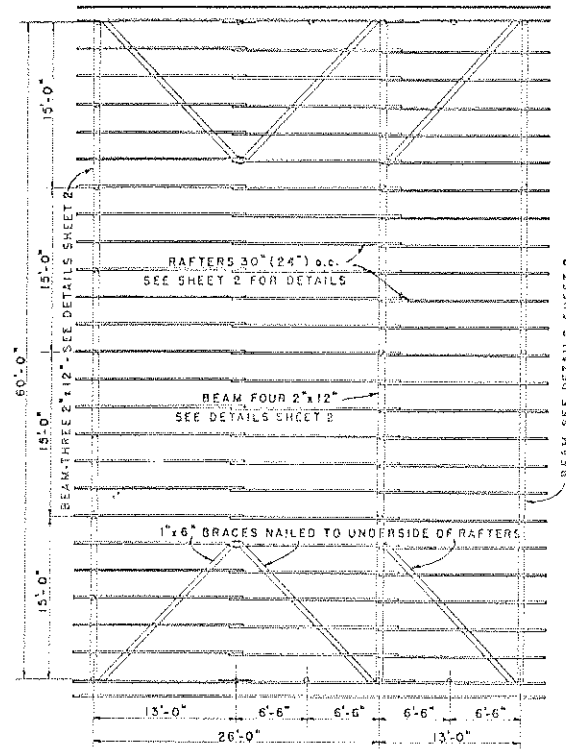 15'-0"
15'-0"
15'-0"
15'-0"
60'-0"
BEAM-THREE 2"x12"-SEE DETAILS SHEET 2
RAFTERS 30" (24") o.c.
SEE SHEET 2 FOR DETAILS
BEAM FOUR 2"x12"
SEE DETAILS SHEET 2
BEAM SEE DETAILS SHEET 2
1"x6" BRACES NAILED TO UNDERSIDE OF RAFTERS
13'-0" 6'-6" 6'-6" 6'-6" 6'-6"
26'-0" 13'-0"